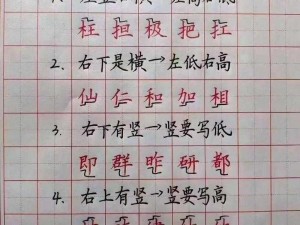 枉 担 极 抱 扛
2. 右下是横→左低右高
仙 仁 和 加 相
3. 右下有竖→竖要写低
即 群 昨 研 都
4. 右上有竖→竖要写高